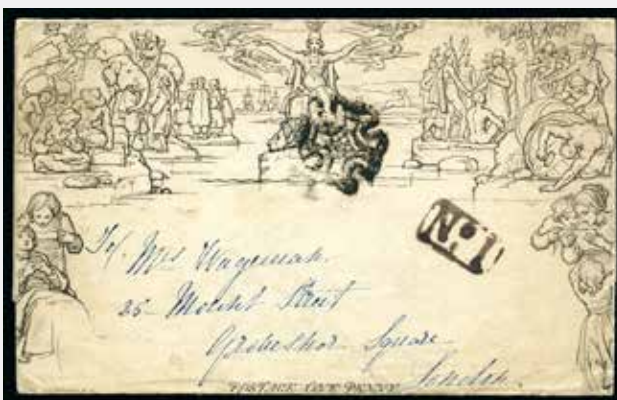 No. 1
Mrs Wageman
25 Mount Street
Grosvenor Square
London.
POSTAGE ONE PENNY